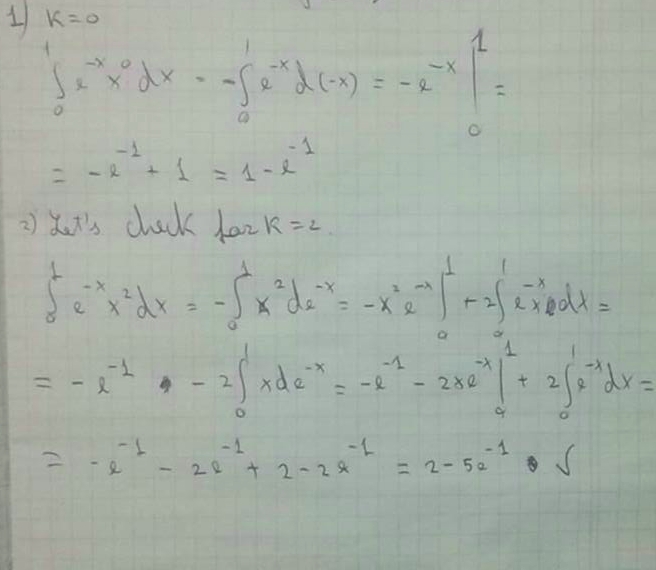 1) K=0
∫₀¹ e^{-x} x^0 dx = -∫₀¹ e^{-x} d(-x) = -e^{-x} |₀¹ =
= -e^{-1} + 1 = 1 - e^{-1}
2) Let's check for K=2.
∫₀¹ e^{-x} x² dx = -∫₀¹ x² de^{-x} = -x² e^{-x} |₀¹ + 2∫₀¹ e^{-x} x dx =
= -e^{-1} - 2∫₀¹ x de^{-x} = -e^{-1} - 2xe^{-x} |₀¹ + 2∫₀¹ e^{-x} dx =
= -e^{-1} - 2e^{-1} + 2 - 2e^{-1} = 2 - 5e^{-1} √